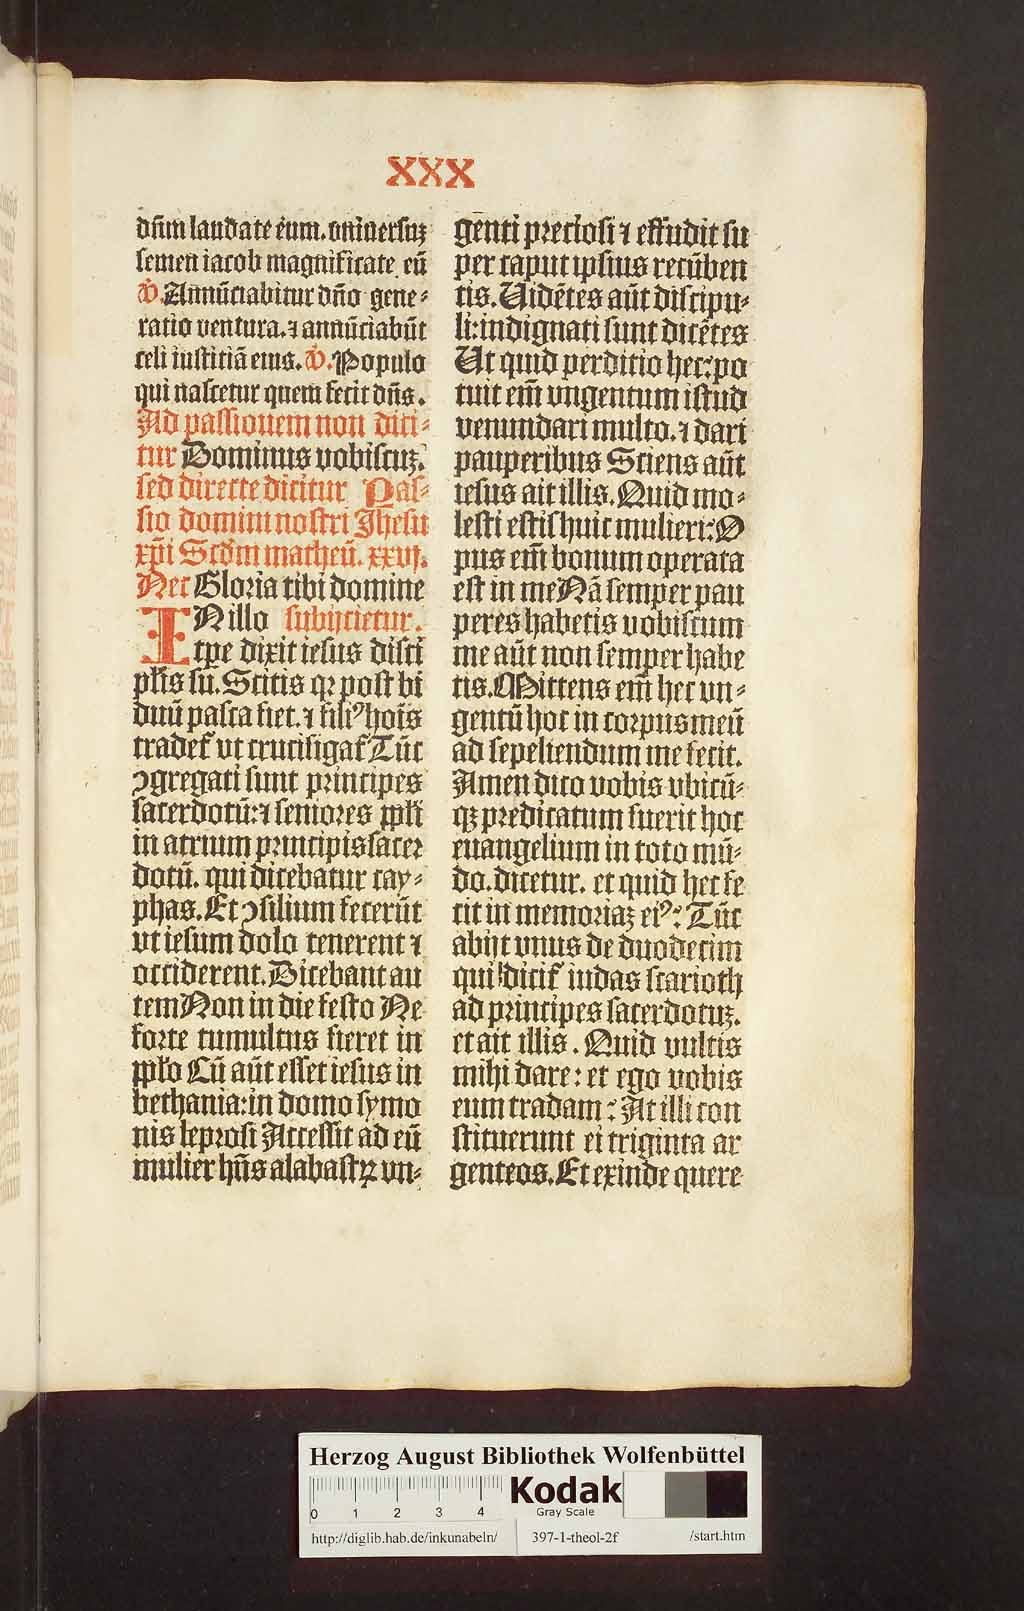 XXX
dñm laudate eum. vniuersuʒ
semen iacob magnificate eū
℣. Annūciabitur dño gene⸗
ratio ventura. ⁊ annūciabūt
celi iustitiā eius. ℣. Populo
qui nascetur quem fecit dñs.
Ad passionem non dici⸗
tur Dominus vobiscuʒ.
sed directe dicitur Pas⸗
sio domini nostri Jhesu
xp̄i Scd̄m matheū. xxvj.
Nec Gloria tibi domine
INillo subijcietur.
tp̄e dixit iesus disci
pl̄is su. Scitis qꝛ post bi
duū pasca fiet. ⁊ filiꝰ hoīs
tradet᷑ vt crucifigat᷑ Tūc
ꝯgregati sunt principes
sacerdotū: ⁊ seniores ppl̄i
in atrium principis sacer
dotū. qui dicebatur cay⸗
phas. Et ꝯsilium fecerūt
vt iesum dolo tenerent ⁊
occiderent. Dicebant au
tem Non in die festo Ne
forte tumultus fieret in
ppl̄o Cū aūt esset iesus in
bethania: in domo symo
nis leprosi Accessit ad eū
mulier hn̄s alabastꝝ vn⸗
genti preciosi ⁊ effudit su
per caput ipsius recūben
tis. Uidētes aūt discipu⸗
li: indignati sunt dicētes
Ut quid perditio hec: po
tuit em̄ vngentum istud
venundari multo. ⁊ dari
pauperibus Sciens aūt
iesus ait illis. Quid mo⸗
lesti estis huic mulieri: O
pus em̄ bonum operata
est in me Nā semper pau
peres habetis vobiscum
me aūt non semper habe
tis. Mittens em̄ hec vn⸗
gentū hoc in corpus meū
ad sepeliendum me fecit.
Amen dico vobis vbicū⸗
qꝫ predicatum fuerit hoc
euangelium in toto mū⸗
do. dicetur. et quid hec fe
cit in memoriaʒ eiꝰ: Tūc
abijt vnus de duodecim
qui dicit᷑ iudas scarioth
ad principes sacerdotuʒ.
et ait illis. Quid vultis
mihi dare: et ego vobis
eum tradam: At illi con
stituerunt ei triginta ar
genteos. Et exinde quere
Herzog August Bibliothek Wolfenbüttel
0 1 2 3 4
Kodak
Gray Scale
http://diglib.hab.de/inkunabeln/ 397-1-theol-2f /start.htm